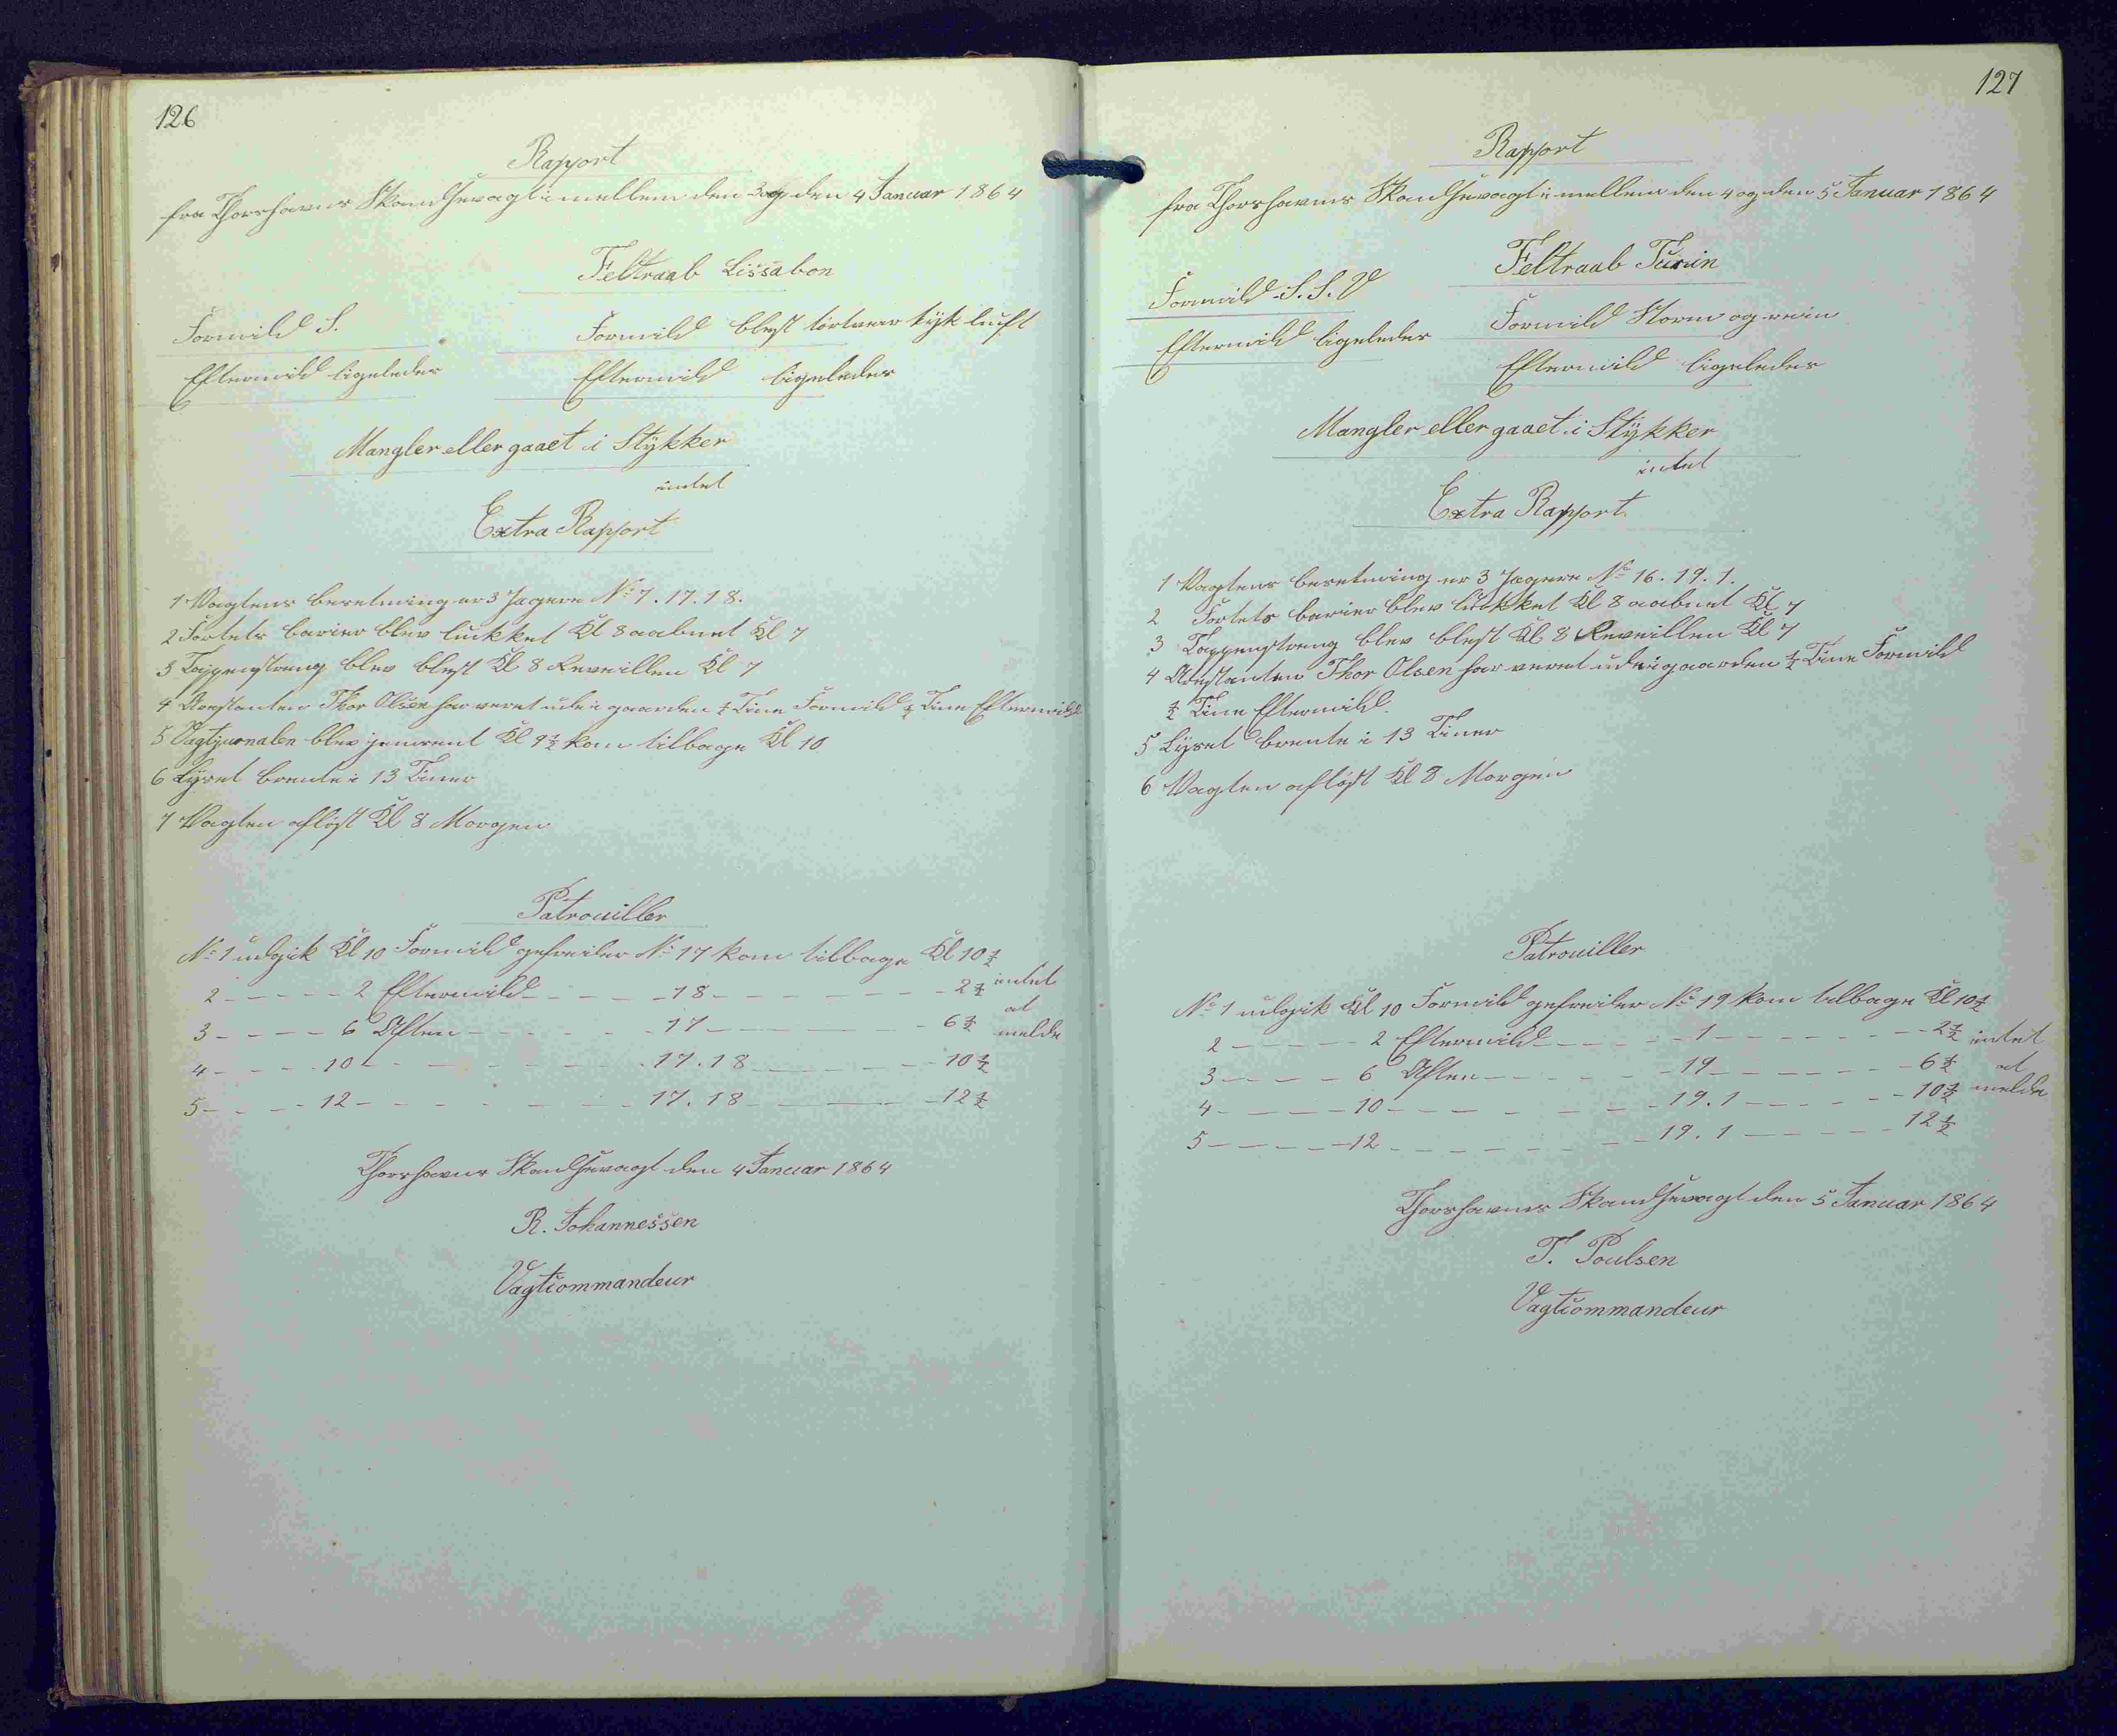 126
Rapport
fra Thorshavns Skandsevagt imellem den 3 og den 4 Januar 1864
Feltraab Lissabon
Formidd S.
Formidd blest törtveir tÿk luft
Eftermidd ligeledes
Eftermidd ligeledes
Mangler eller gaaet i Stÿkker
intet
Extra Rapport
1 Vagtens besetning er 3 Jægere No 7. 17. 18.
2 Fortets barier blev lukket Kl 8 aabnet Kl 7
3 Tappenstreng blev blest Kl 8 Reveillen Kl 7
4 Arestanten Thor Olsen har veret ude i gaarden ½ Time Formidd ½ Time Eftermidd
5 Vagtjournalen blev Kl 9½ kom tilbage Kl 10
6 Lÿset brente i 13 Timer
7 Vagten aflöst Kl 8 Morgen
Patrouiller
No 1 udgik Kl 10 Formidd gefreiter No 17 kom tilbage Kl 10½
2 - - - - - 2 Eftermidd - - - - - 18 - - - - - - - - 2½ intet
3 - - - - 6 Aften - - - - - - 17 - - - - - - - 6½ at melde
4 - - - - 10 - - - - - - - 17. 18 - - - - - - 10½
5 - - - - 12 - - - - - - - 17. 18 - - - - - - 12½
Thorshavns Skandsevagt den 4 Januar 1864
R. Johannessen
Vagtcommandeur
127
Rapport
fra Thorshavns Skandsevagt imellem den 4 og den 5 Januar 1864
Feltraab Turin
Formidd S. S. V
Formidd Storm og rein
Eftermidd ligeledes
Eftermidd ligeledes
Mangler eller gaaet i Stÿkker
intet
Extra Rapport
1 Vagtens besetning er 3 Jægere No 16. 19. 1.
2 Fortets barier blev lukket Kl 8 aabnet Kl 7
3 Tappenstreng blev blest Kl 8 Reveillen Kl 7
4 Arestanten Thor Olsen har veret ude i gaarden ½ Time Formidd
½ Time Eftermidd
5 Lÿset brente i 13 Timer
6 Vagten aflöst Kl 8 Morgen
Patrouiller
No 1 udgik Kl 10 Formidd gefreiter No 19 kom tilbage Kl 10½
2 - - - - - 2 Eftermidd - - - - - 1 - - - - - - - 2½ intet
3 - - - - 6 Aften - - - - - 19 - - - - - - - 6½ at
4 - - - - - 10 - - - - - - - 19. 1 - - - - - 10½ melde
5 - - - - - 12 - - - - - - - 19. 1 - - - - - 12½
Thorshavns Skandsevagt den 5 Januar 1864
T. Poulsen
Vagtcommandeur